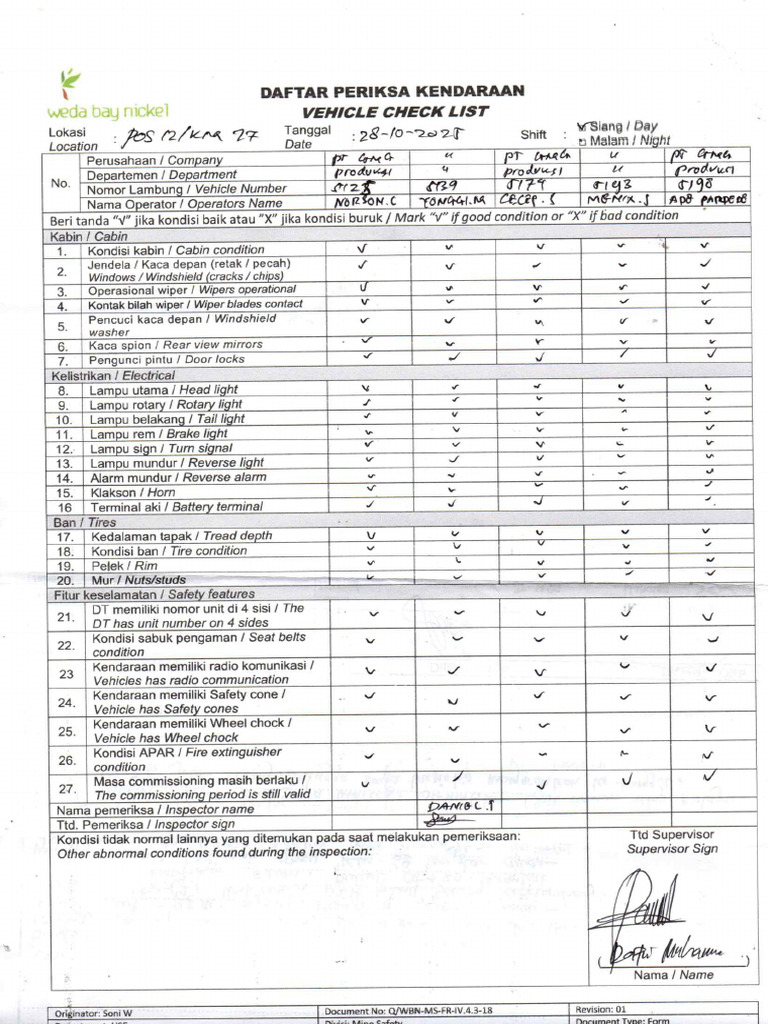 weda bay nickel
DAFTAR PERIKSA KENDARAAN
VEHICLE CHECK LIST
Lokasi
Location : POS 12/KM 27
Tanggal
Date : 28-10-2025
Shift : ☑ Siang / Day
☐ Malam / Night
No. Perusahaan / Company PT " PT " PT
Departemen / Department produksi " produksi " produksi
Nomor Lambung / Vehicle Number 5139 5174 5193 5198
Nama Operator / Operators Name NORSON.C TONGGI.M CECEP.S MENIX.S ADE
Beri tanda "√" jika kondisi baik atau "X" jika kondisi buruk / Mark "√" if good condition or "X" if bad condition
Kabin / Cabin
1. Kondisi kabin / Cabin condition √ √ √ √ √
2. Jendela / Kaca depan (retak / pecah)
Windows / Windshield (cracks / chips) √ √ √ √ √
3. Operasional wiper / Wipers operational √ √ √ √ √
4. Kontak bilah wiper / Wiper blades contact √ √ √ √ √
5. Pencuci kaca depan / Windshield
washer √ √ √ √ √
6. Kaca spion / Rear view mirrors √ √ √ √ √
7. Pengunci pintu / Door locks √ √ √ √ √
Kelistrikan / Electrical
8. Lampu utama / Head light √ √ √ √ √
9. Lampu rotary / Rotary light √ √ √ √ √
10. Lampu belakang / Tail light √ √ √ √ √
11. Lampu rem / Brake light √ √ √ √ √
12. Lampu sign / Turn signal √ √ √ √ √
13. Lampu mundur / Reverse light √ √ √ √ √
14. Alarm mundur / Reverse alarm √ √ √ √ √
15. Klakson / Horn √ √ √ √ √
16 Terminal aki / Battery terminal √ √ √ √ √
Ban / Tires
17. Kedalaman tapak / Tread depth √ √ √ √ √
18. Kondisi ban / Tire condition √ √ √ √ √
19. Pelek / Rim √ √ √ √ √
20. Mur / Nuts/studs √ √ √ √ √
Fitur keselamatan / Safety features
21. DT memiliki nomor unit di 4 sisi / The
DT has unit number on 4 sides √ √ √ √ √
22. Kondisi sabuk pengaman / Seat belts
condition √ √ √ √ √
23 Kendaraan memiliki radio komunikasi /
Vehicles has radio communication √ √ √ √ √
24. Kendaraan memiliki Safety cone /
Vehicle has Safety cones √ √ √ √ √
25. Kendaraan memiliki Wheel chock /
Vehicle has Wheel chock √ √ √ √ √
26. Kondisi APAR / Fire extinguisher
condition √ √ √ √ √
27. Masa commissioning masih berlaku /
The commissioning period is still valid √ √ √ √ √
Nama pemeriksa / Inspector name DANIEL.P
Ttd. Pemeriksa / Inspector sign
Kondisi tidak normal lainnya yang ditemukan pada saat melakukan pemeriksaan:
Other abnormal conditions found during the inspection:
Ttd Supervisor
Supervisor Sign
Nama / Name
Originator: Soni W Document No: Q/WBN-MS-FR-IV.4.3-18 Revision: 01
Divisi: Mine Safety Document Type: Form